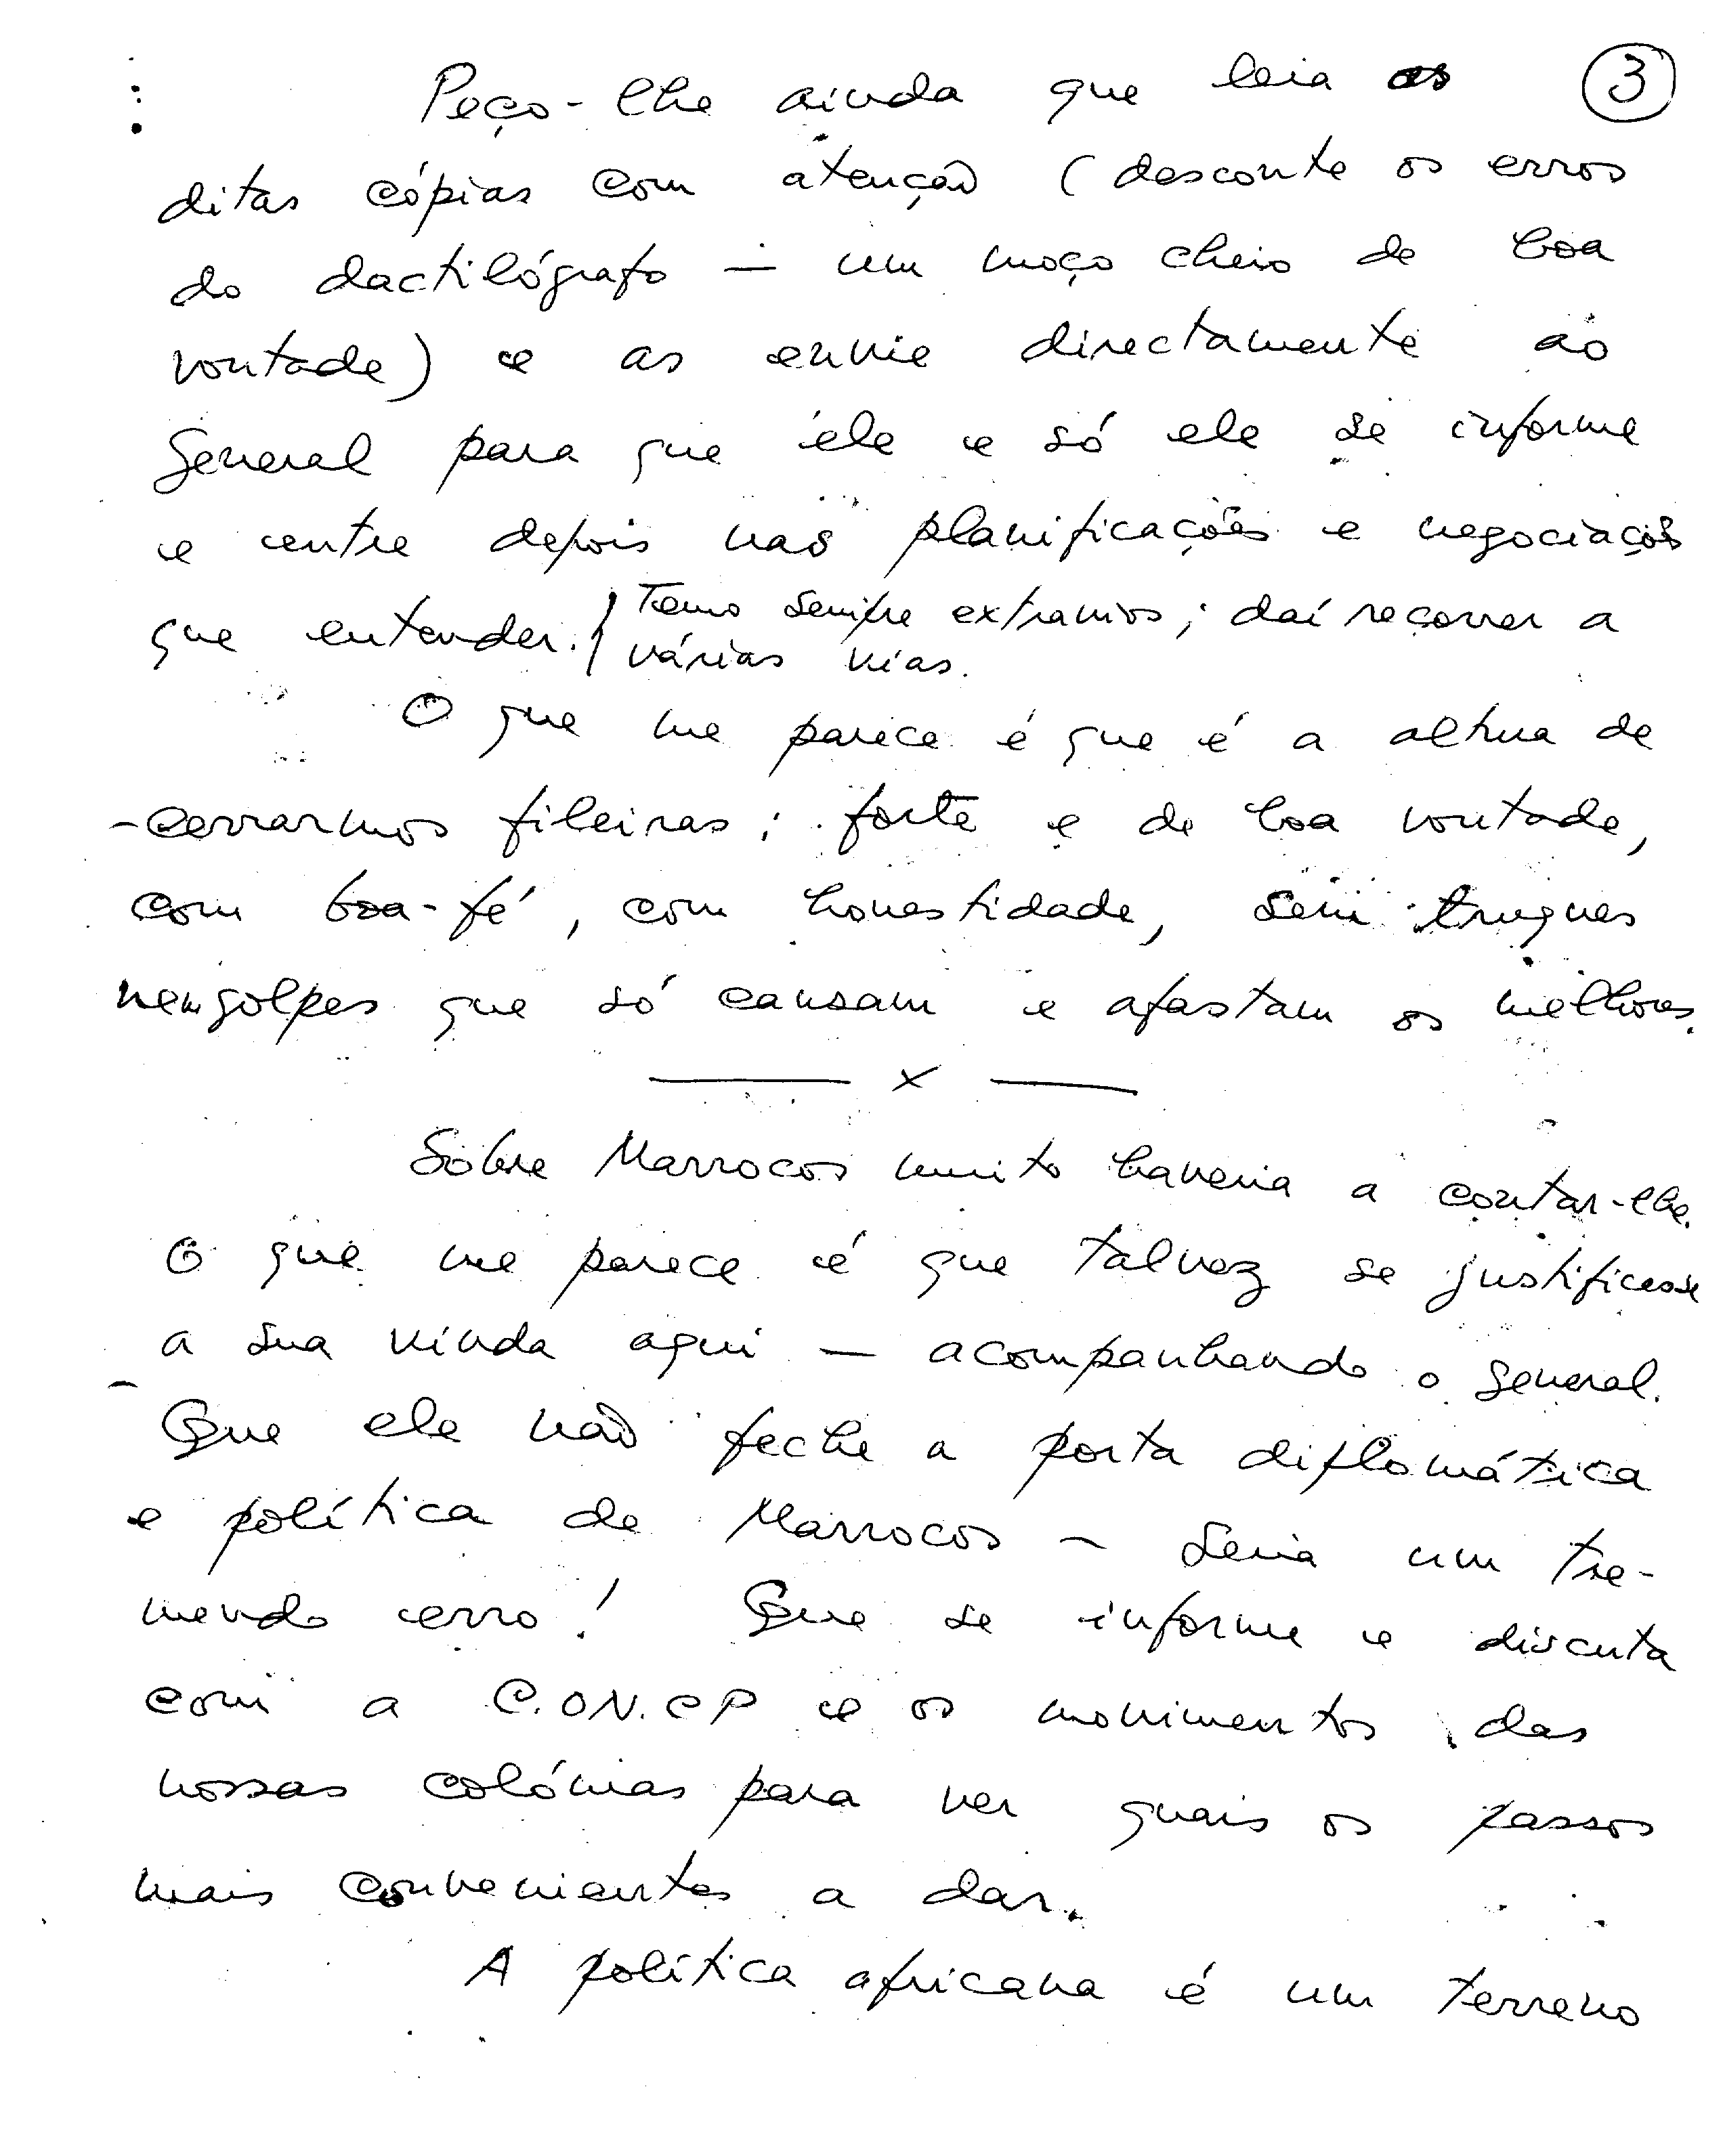 3
Peço-lhe ainda que leia as
ditas cópias com atenção (desconte os erros
do dactilógrafo — um moço cheio de boa
vontade) e as envie directamente ao
General para que êle e só ele se informe
e entre depois nas planificações e negociações
que entender.
Temo sempre extravios; daí recorrer a
várias vias.
O que me parece é que é a altura de
cerrarmos fileiras; forte e de boa vontade,
com boa-fé, com honestidade, sem truques
nem golpes que só cansam e afastam os melhores.
——— x ———
Sôbre Marrocos muito haveria a contar-lhe.
O que me parece é que talvez se justificasse
a sua vinda aqui — acompanhando o general.
Que ele não feche a porta diplomática
e política de Marrocos – seria um tre-
mendo erro! Que se informe e discuta
com a C.ON.CP e os movimentos das
nossas colónias para ver quais os passos
mais convenientes a dar.
A política africana é um terreno